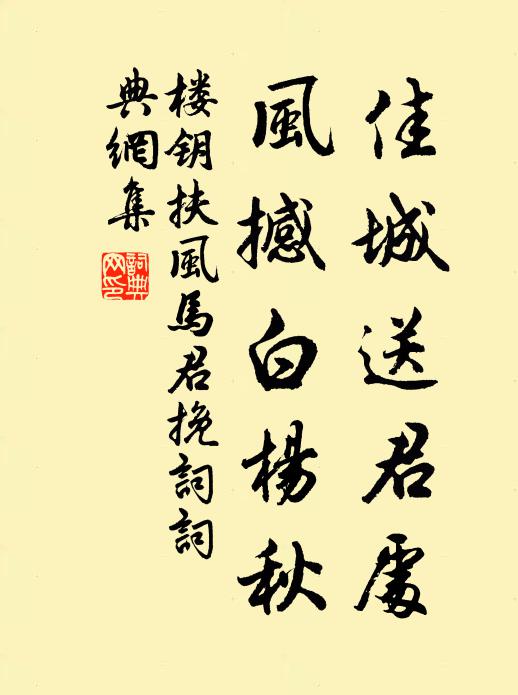 佳城送君處
風撼白楊秋
楼钥扶風馬君挽詞詞
典網集
詞典
网印